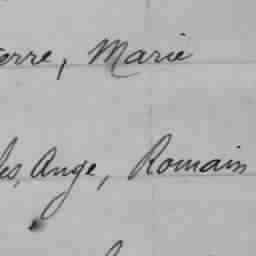 erre, Marie
les, Ange, Romain